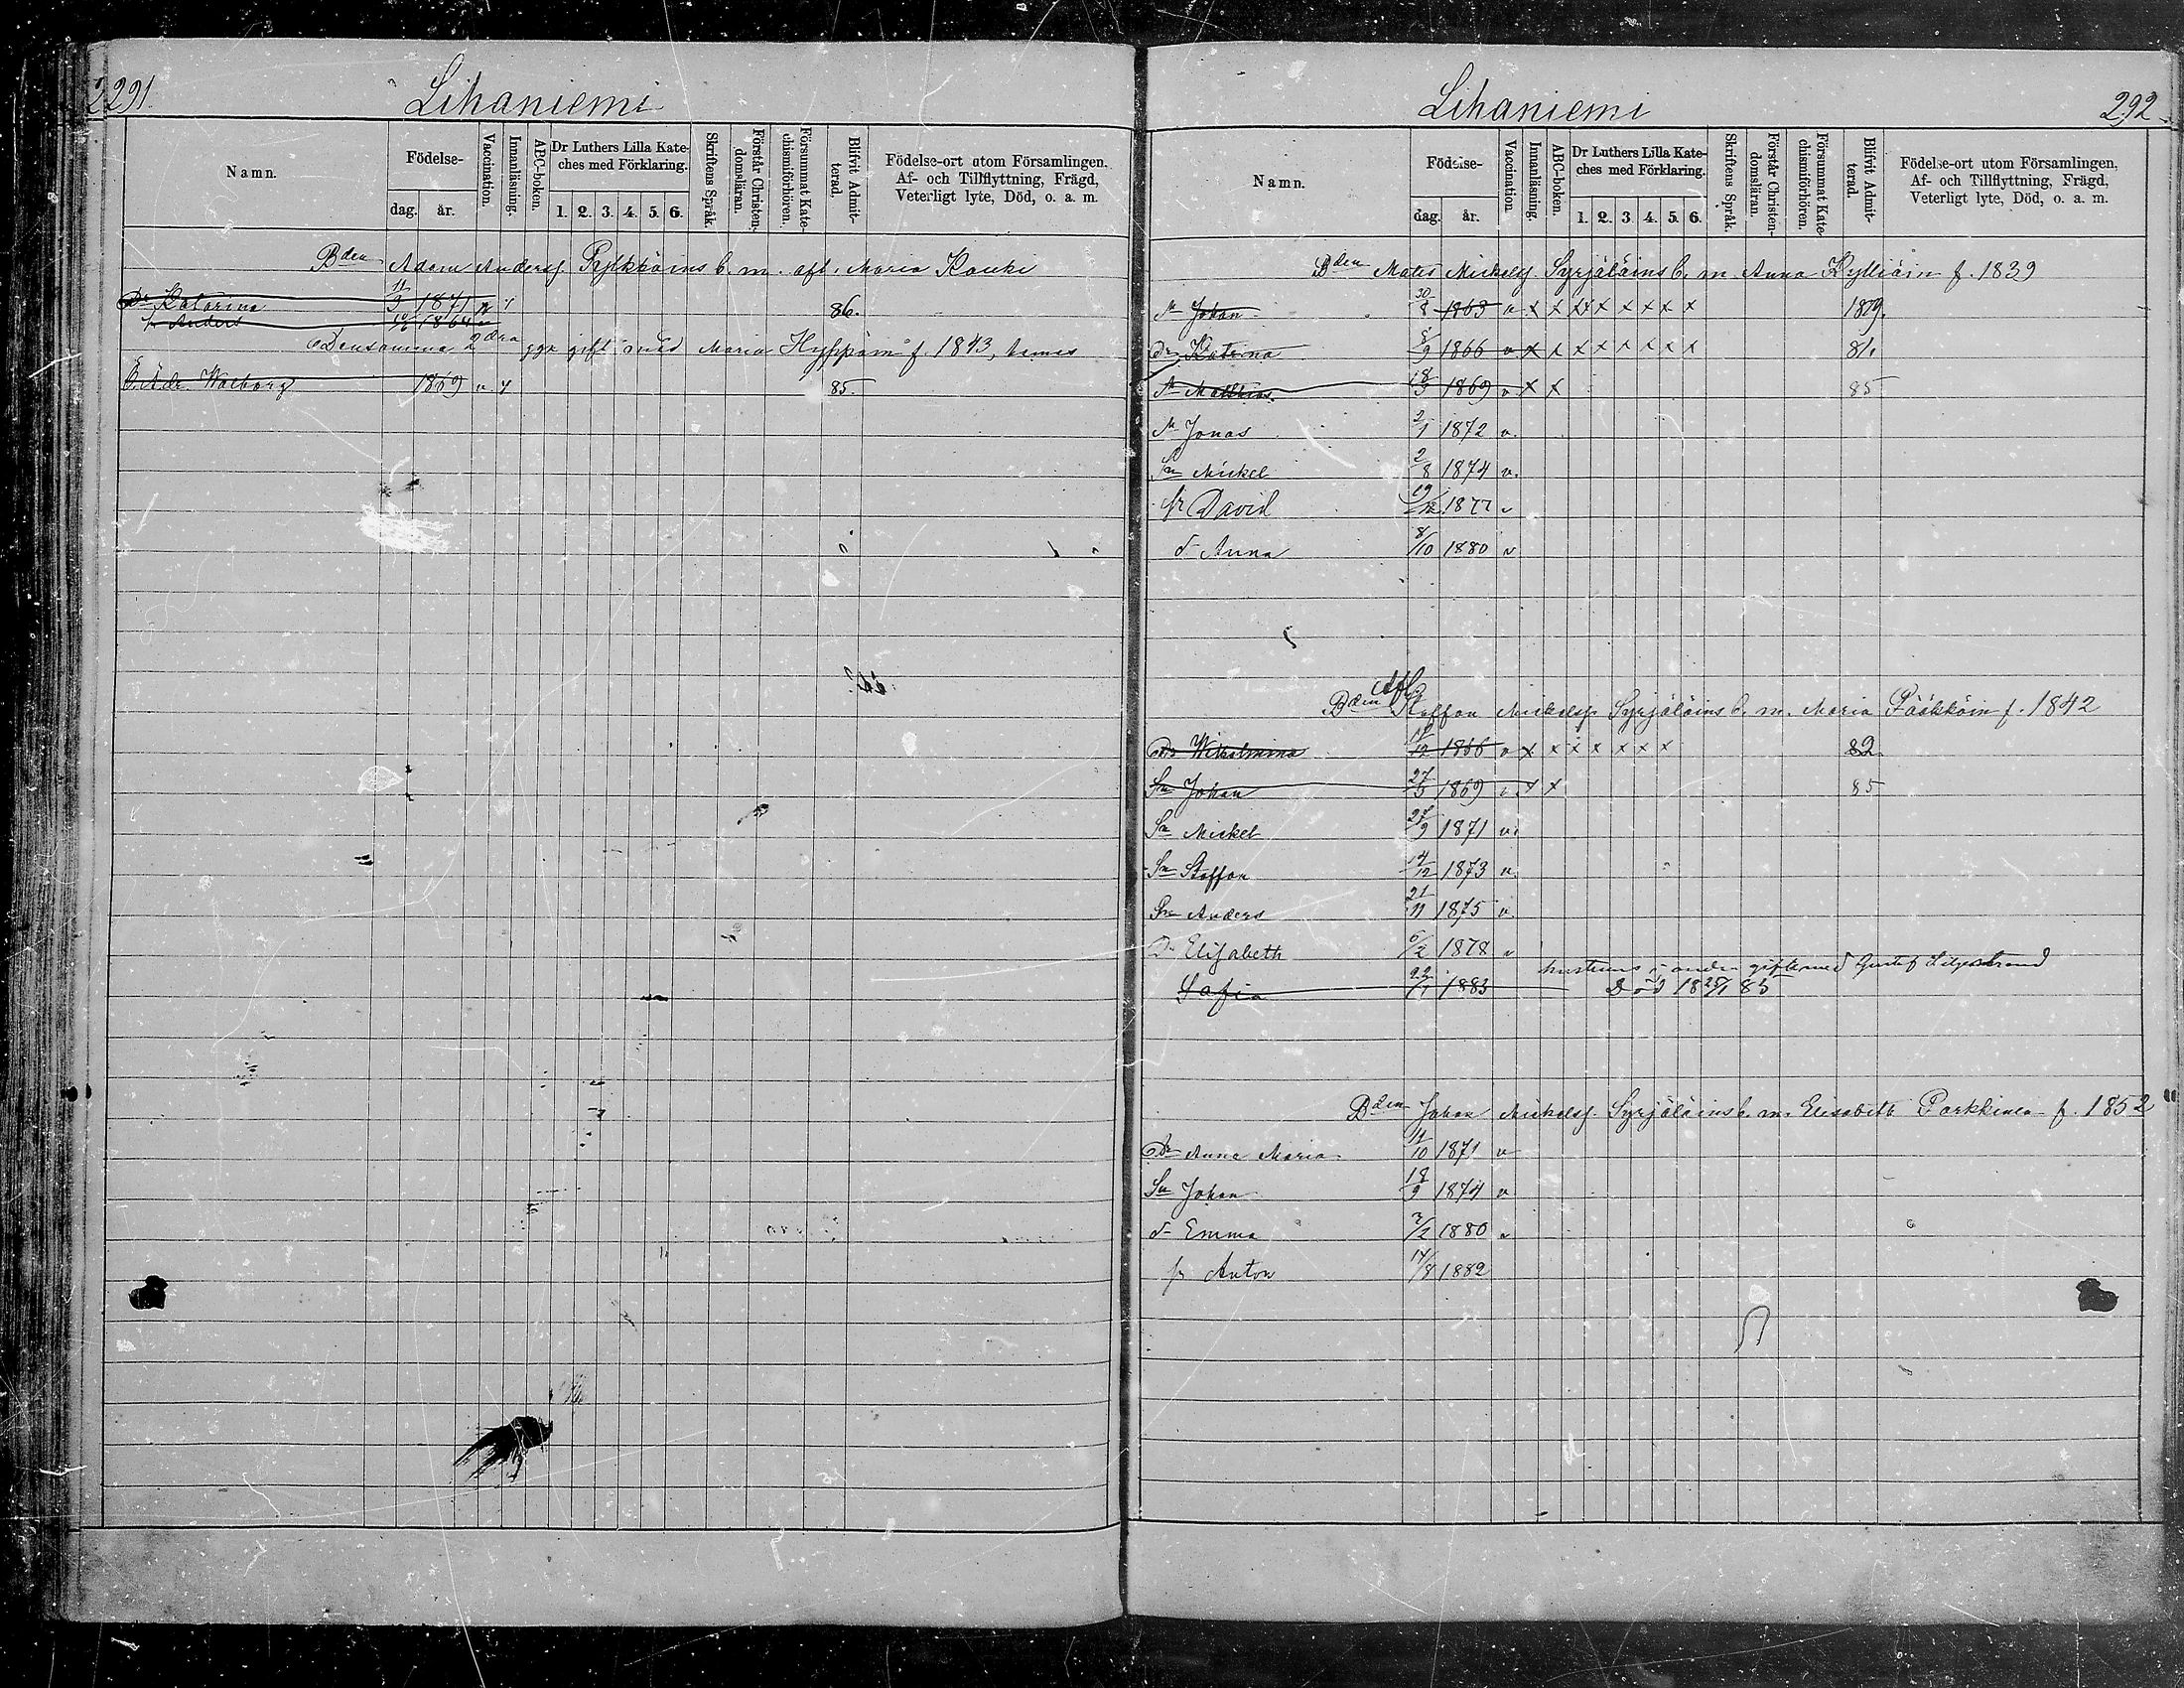 291.
Lihaniemi
Namn.
Födelse-
dag. år.
Vaccination.
Innanläsning.
ABC-boken.
Dr Luthers Lilla Kate-
ches med Förklaring.
1. 2. 3. 4. 5. 6.
Skriftens Språk.
Förstår Christen-
domsläran.
Försummat Kate-
chismiförhören.
Blifvit Admit-
terad.
Födelse-ort utom Församlingen.
Af- och Tillflyttning, Frägd,
Veterligt lyte, Död, o. a. m.
Bden Adam Anderss. Pylkköins b. m. afl. Maria Kauki
Dr Katarina 11/9 1871 v x 86.
Anders 1864
Densamma 2dra gift med Maria Hyppöin f. 1843, hennes
Ä. dr. Walborg 1869 v x 85.
Lihaniemi
292
Namn.
Födelse-
dag. år.
Vaccination
Innanläsning.
ABC-boken.
Dr Luthers Lilla Kate-
ches med Förklaring.
1. 2. 3. 4. 5. 6.
Skriftens Språk.
Förstår Christen-
domsläran.
Försummat Kate-
chismiförhören.
Blifvit Admit-
terad.
Födelse-ort utom Församlingen,
Af- och Tillflyttning, Frägd,
Veterligt lyte, Död, o. a. m.
Bden Mats Mickelss. Syrjäläins b. m. Anna Kylliäin f. 1839
Sn Johan 30/8 1863 v x x x x x x x x 1879.
Dr Katrina 8/9 1866 v x x x x x x x x 81.
Sn Mathias 18/3 1869 v x x 85
Sn Jonas 2/1 1872 v.
Sn Mickel 2/8 1874 v.
Sn David 19/12 1877 v
d- Anna 8/10 1880 v
Afl.
Bden Staffan Mickelss. Syrjäläins b. m. Maria Pääkköin f. 1842
Dr Wilhelmina 17/12 1866 v x x x x x x x 82
Sn Johan 27/5 1869 v. x x 85
Sn Mickel 27/9 1871 v.
Sn Staffan 14/12 1873 v.
Sn Anders 21/11 1875 v.
D- Elisabeth 6/2 1878 v
hustruns i andra gifte med Gustaf Liljestrand
Safia 22/1 1883 Död 18 25/1 85
Bden Johan Mickelss. Syrjäläins b. m. Elisabeth Parkkinen f. 1852
Dr Anna Maria 11/10 1871 v
Sn Johan 18/9 1874 v
d- Emma 3/2 1880 v
Sn Anton 14/8 1882